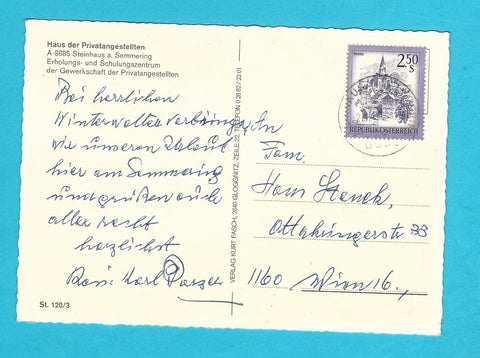 Haus der Privatangestellten
A-8685 Steinhaus a. Semmering
Erholungs- und Schulungszentrum
der Gewerkschaft der Privatangestellten
Bei herrlichen
Winterwetter verbringen
wir unseren Urlaub
hier am Semmering
und grüßen euch
alle recht
herzlichst
Karl
St. 120/3
VERLAG KURT FASCH, 2640 GLOGGNITZ, ZEILE 22, TELEFON 0 26 62 / 23 01
2.50
S
REPUBLIK ÖSTERREICH
An
Fam.
Hans
Ottakringerstr 33
1160 Wien 16.,